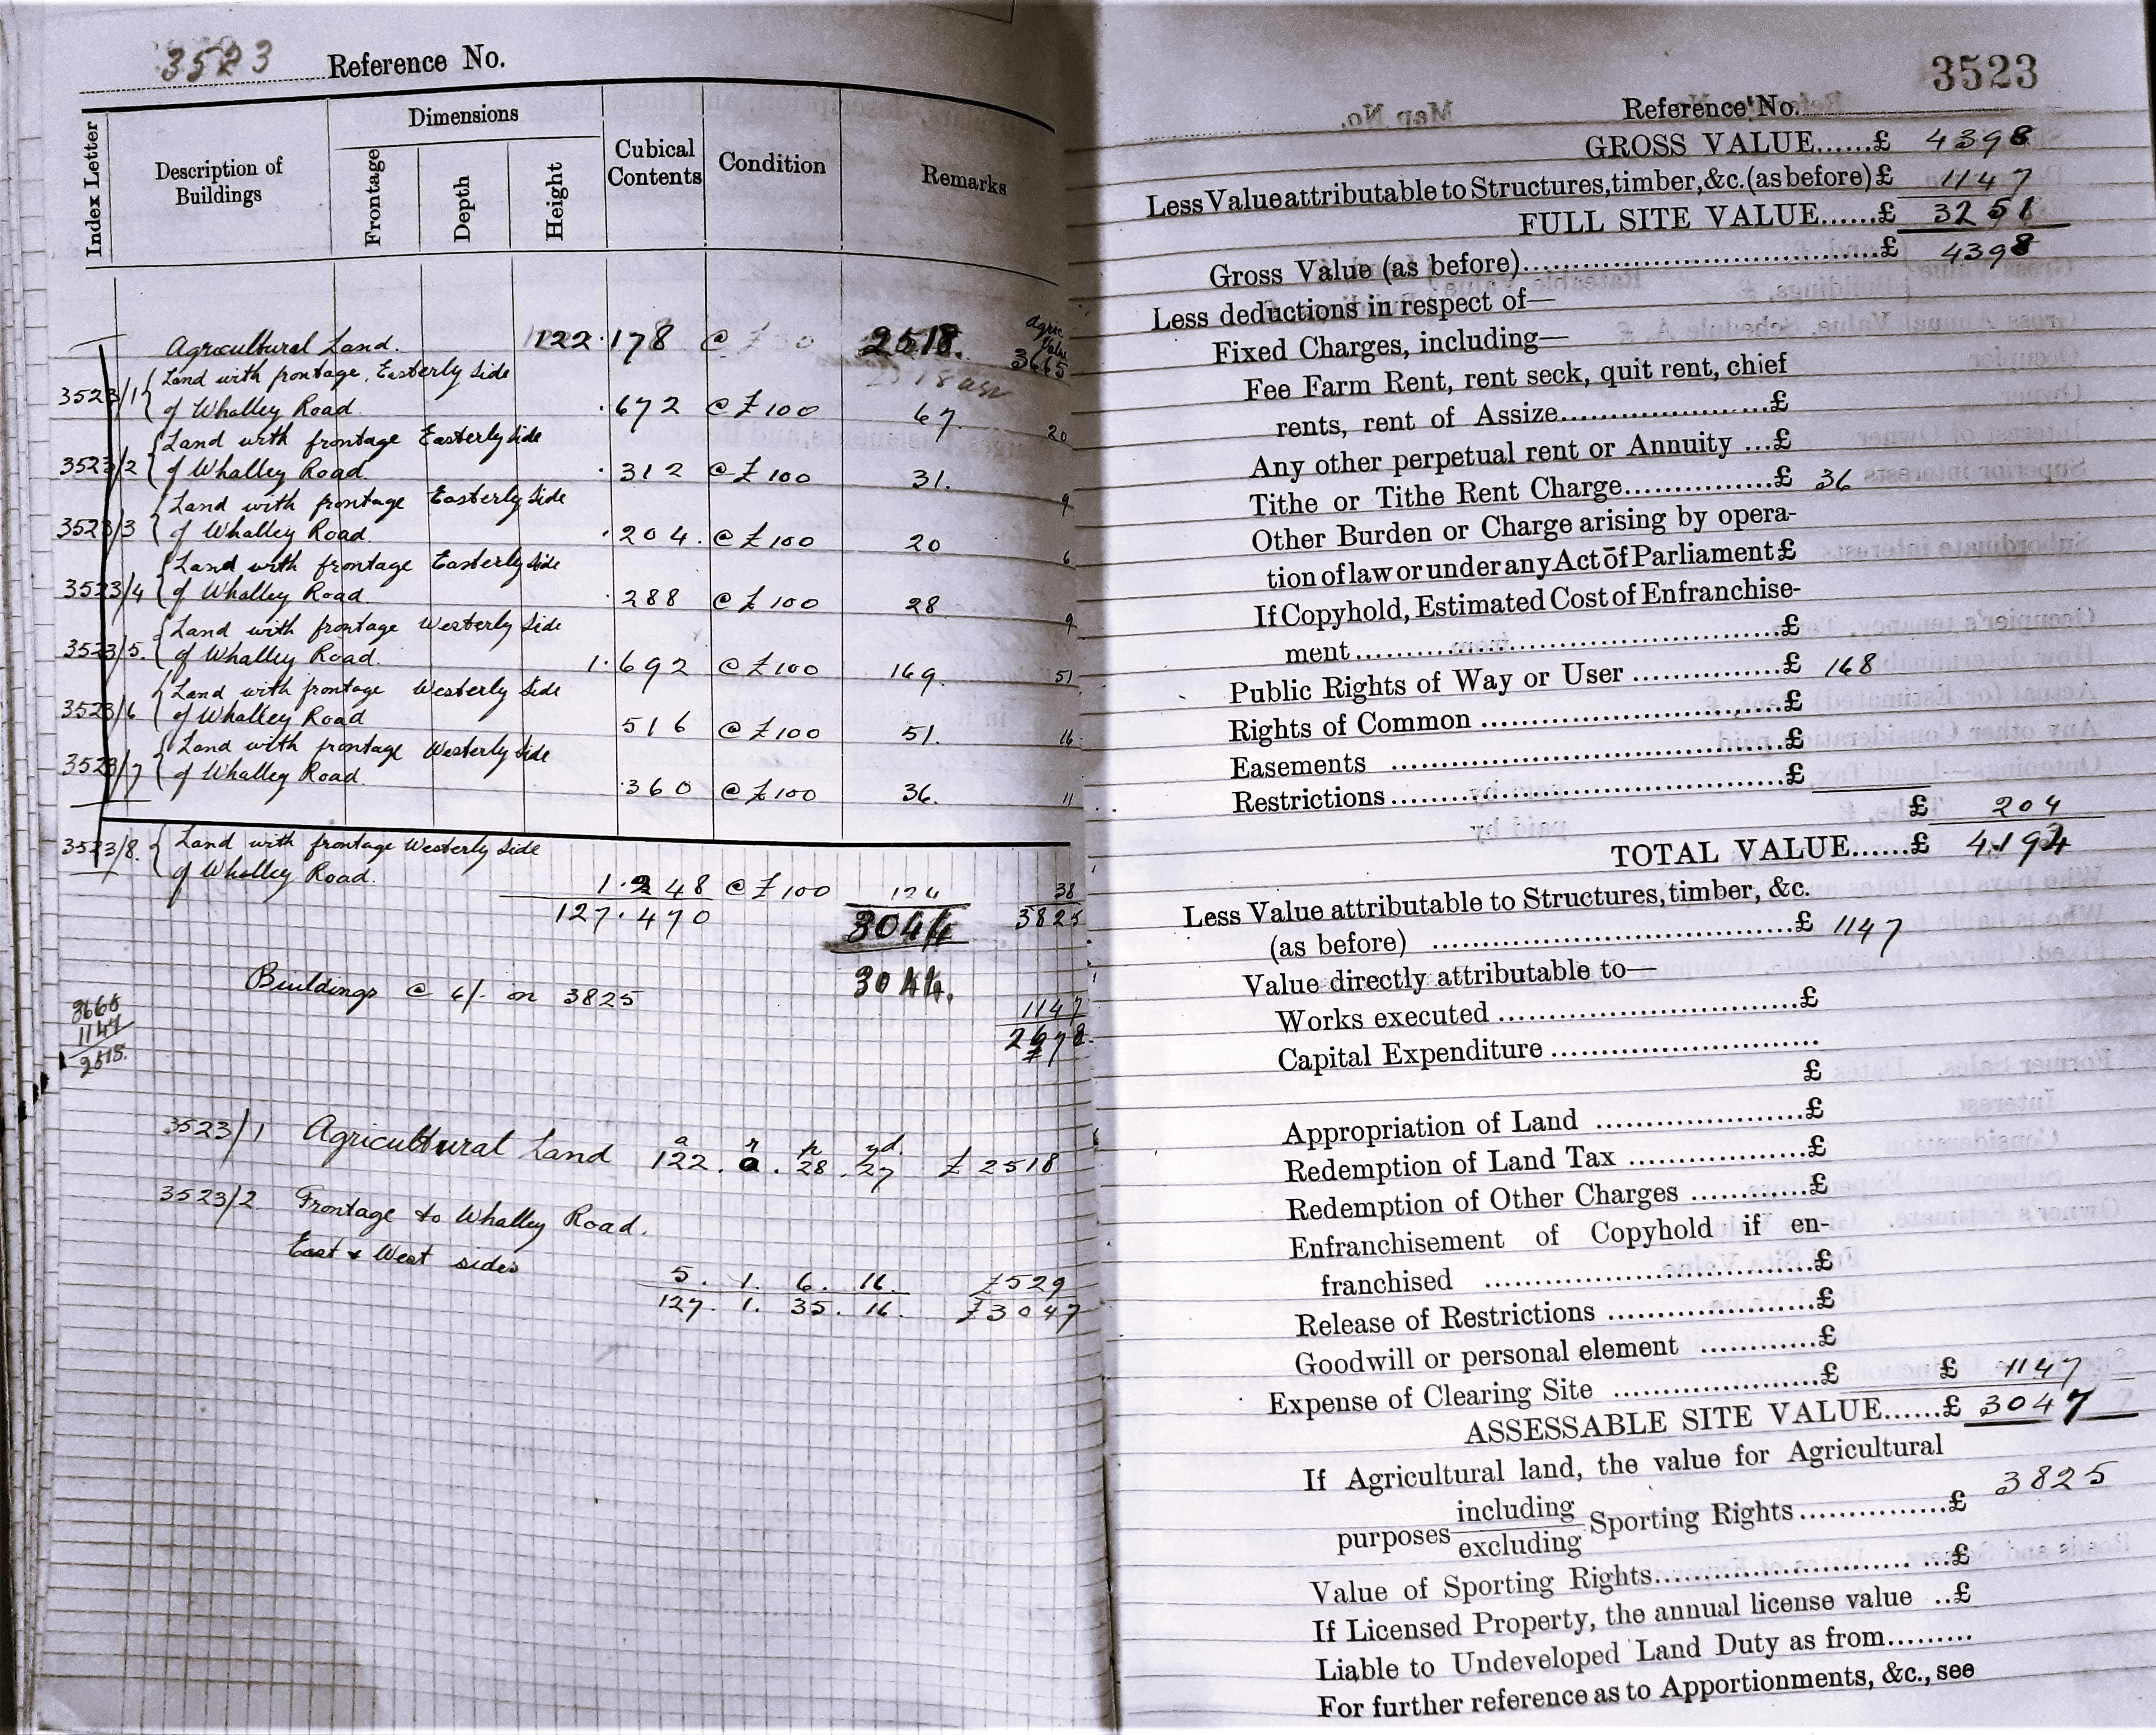 3523 Reference No.
Index Letter
Description of Buildings
Dimensions
Frontage
Depth
Height
Cubical Contents
Condition
Remarks
Agricultural Land. 122.178 @ 2518. Agric. Value 3665
3523/1 { Land with frontage, Easterly Side
of Whalley Road. .672 @ £100 67. 20
3523/2 { Land with frontage Easterly side
of Whalley Road. .312 @ £100 31. 9
3523/3 { Land with frontage Easterly Side
of Whalley Road. .204. @ £100 20 6
3523/4 { Land with frontage Easterly side
of Whalley Road. .288 @ £100 28 9
3523/5. { Land with frontage Westerly Side
of Whalley Road. 1.692 @ £100 169. 51
3523/6 { Land with frontage Westerly Side
of Whalley Road 516 @ £100 51. 16
3523/7 { Land with frontage Westerly Side
of Whalley Road. .360 @ £100 36. 11
3523/8. { Land with frontage Westerly Side
of Whalley Road. 1.248 @ £100 124 38
127.470 3044 3825
3044.
Buildings @ 6/- on 3825 1147
3665
1147
2518.
2678
a r p yd.
3523/1 Agricultural Land 122. 0. 28. 27 £2518
3523/2 Frontage to Whalley Road.
East & West sides
5. 1. 6. 16. £529
127. 1. 35. 16. £3047
3523
Reference No.
GROSS VALUE......£ 4398
Less Value attributable to Structures, timber, &c. (as before) £ 1147
FULL SITE VALUE......£ 3251
Gross Value (as before)......£ 4398
Less deductions in respect of—
Fixed Charges, including—
Fee Farm Rent, rent seck, quit rent, chief
rents, rent of Assize......£
Any other perpetual rent or Annuity ...£
Tithe or Tithe Rent Charge......£ 36
Other Burden or Charge arising by opera-
tion of law or under any Act of Parliament £
If Copyhold, Estimated Cost of Enfranchise-
ment......£
Public Rights of Way or User ......£ 168
Rights of Common ......£
Easements ......£
Restrictions......£
£ 204
TOTAL VALUE......£ 4194
Less Value attributable to Structures, timber, &c.
(as before) ......£ 1147
Value directly attributable to—
Works executed ......£
Capital Expenditure ......
£
Appropriation of Land ......£
Redemption of Land Tax ......£
Redemption of Other Charges ......£
Enfranchisement of Copyhold if en-
franchised ......£
Release of Restrictions ......£
Goodwill or personal element ......£
Expense of Clearing Site ......£ £ 1147
ASSESSABLE SITE VALUE......£ 3047
If Agricultural land, the value for Agricultural
purposes including/excluding Sporting Rights......£ 3825
Value of Sporting Rights......£
If Licensed Property, the annual license value ..£
Liable to Undeveloped Land Duty as from.........
For further reference as to Apportionments, &c., see